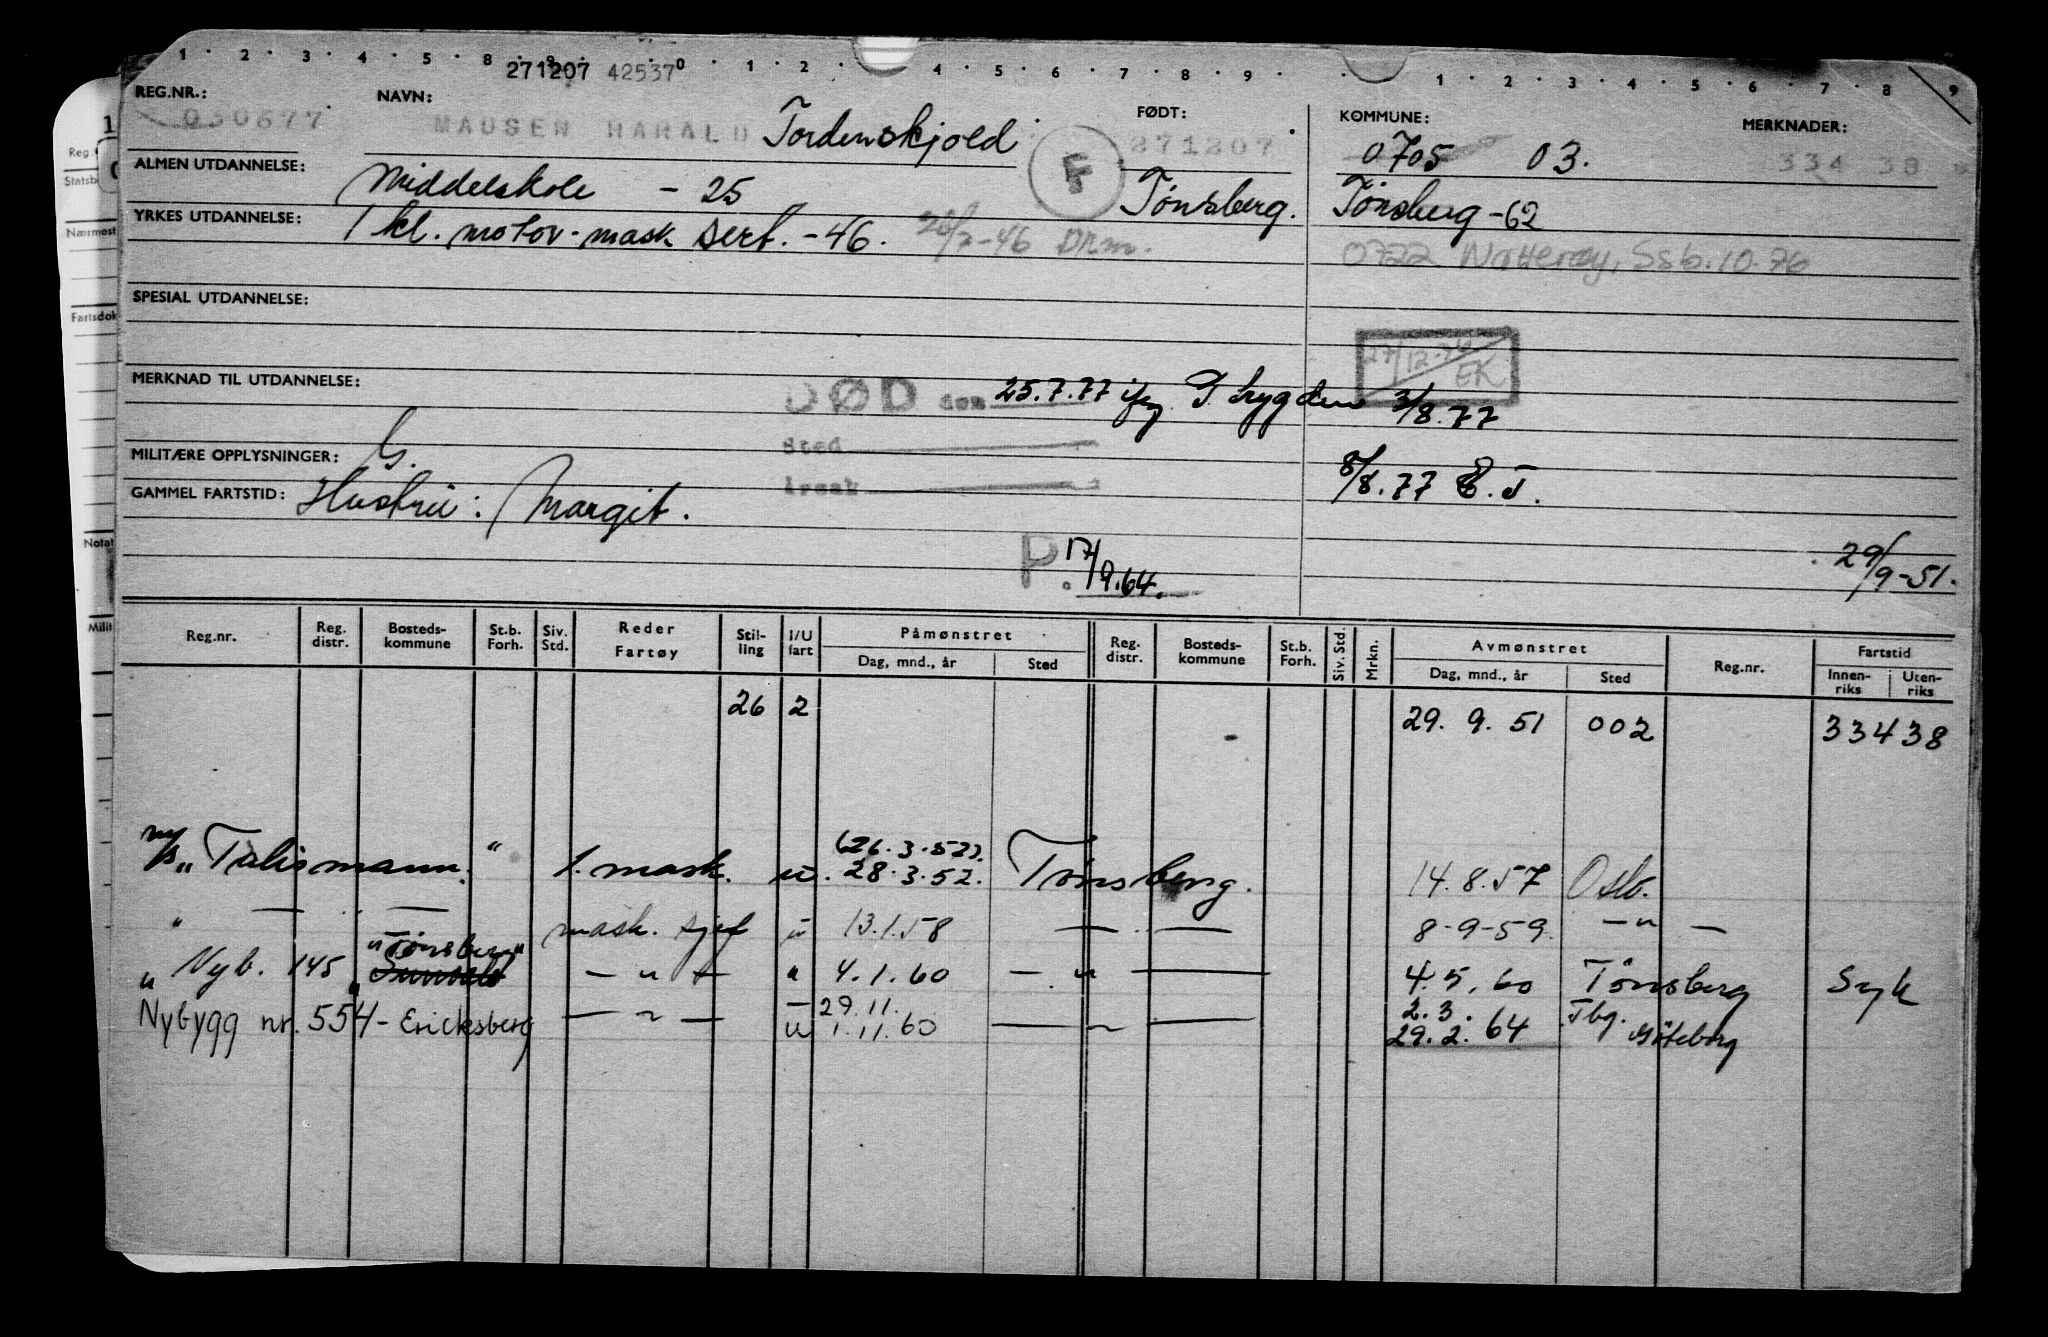 1 · 2 · 3 · 4 · 5 · 8 · 9 · 0 · 1 · 2 · 4 · 5 · 6 · 7 · 8 · 9 · 1 · 2 · 3 · 4 · 5 · 6 · 7 · 8 · 9
271207 42537
REG.NR.: NAVN: FØDT: KOMMUNE: MERKNADER:
030677 MAUSEN HARALD Tordenskjold F 271207 0705 03. 334 38
ALMEN UTDANNELSE: Middelskole - 25 Tønsberg. Tønsberg -62
YRKES UTDANNELSE: 1 kl. motor-mask sert. -46. 26/7-46 Drm. 0722 Nøtterøy, Ssb. 10.76
SPESIAL UTDANNELSE:
27/12-76 EK
MERKNAD TIL UTDANNELSE: DØD den 25.7.77 ifg 3/8.77
Sted
MILITÆRE OPPLYSNINGER: G. 8/8.77
GAMMEL FARTSTID: Hustru: Margit. Årsak
P. 17/9.64. 29/9-51.
Reg.nr. Reg. distr. Bosteds-kommune St.b. Forh. Siv. Std. Reder Fartøy Stil-ling I/U fart Påmønstret Dag, mnd., år Sted Reg. distr. Bosteds-kommune St.b. Forh. Siv. Std. Mrkn. Avmønstret Dag, mnd., år Sted Reg.nr. Fartstid Innen-riks Uten-riks
26 2 29. 9. 51 002 334 38
(26.3.52).
m/s "Talismann." 1. mask. u. 28.3.52. Tønsberg. 14.8.57 Oslo.
" — " — mask. sjef " 13.1.58 — " — 8-9-59. — " —
"Tønsberg"
" Nyb. 145 — " — " 4.1.60 — " — 4.5.60 Tønsberg Syk
29.11. 2.3. Tbg.
Nybygg nr. 554 - Ericksberg — " — u 1.11.60 — " — 29.2.64 Göteborg
Reg.
Statsb
Nærmest
Fartsdok
Notat
Milit